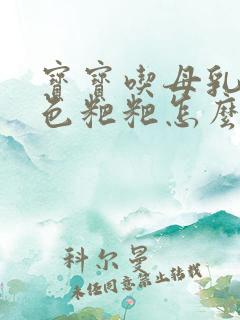 寶寶喫母乳
色粑粑怎麼
科尔曼
未经同意禁止转载